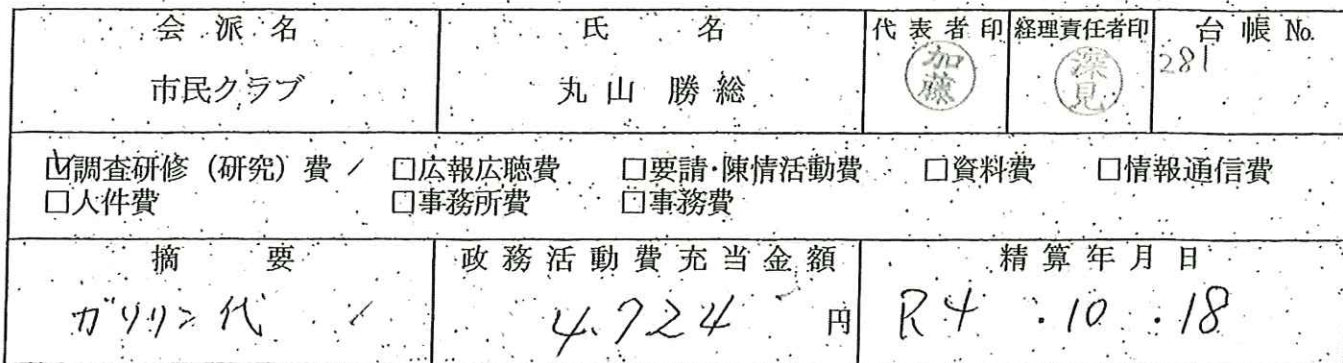 会派名 氏名 代表者印 経理責任者印 台帳No.
市民クラブ 丸山勝総 加藤 深見 281
☑調査研修（研究）費 □広報広聴費 □要請・陳情活動費 □資料費 □情報通信費
□人件費 □事務所費 □事務費
摘要 政務活動費充当金額 精算年月日
ガソリン代 4,724 円 R4.10.18